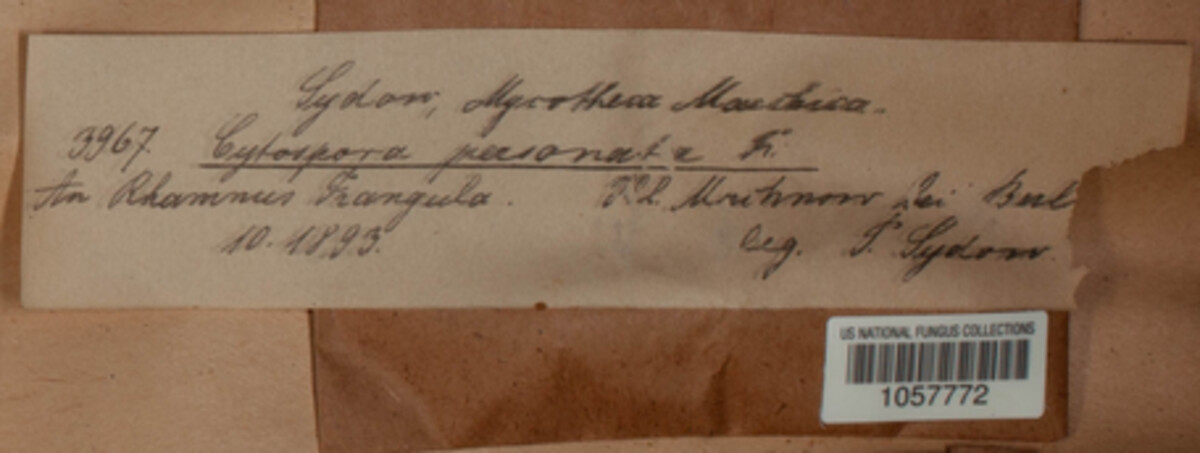 Sydow, Mycotheca Marchica.
3967. Cytospora personata Fr.
An Rhamnus Frangula. bei Berl
10. 1893. leg. P. Sydow.
US NATIONAL FUNGUS COLLECTIONS
1057772